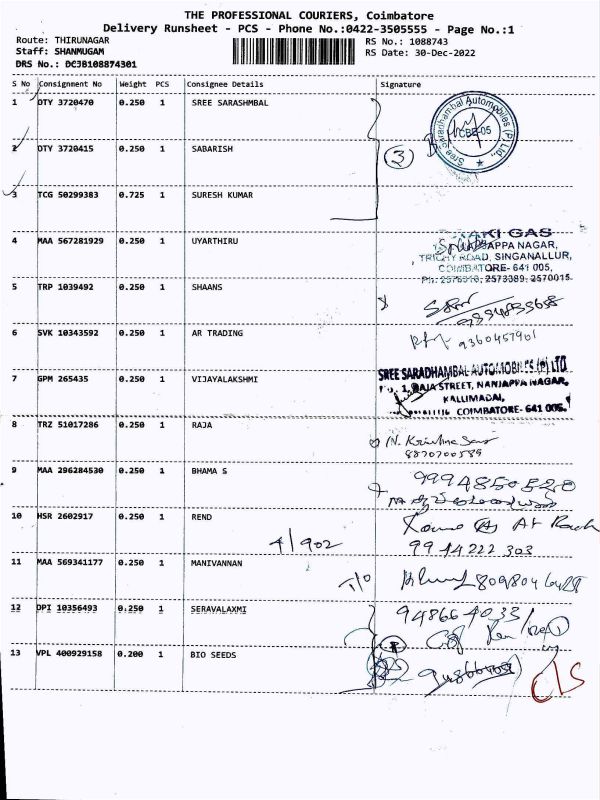 THE PROFESSIONAL COURIERS, Coimbatore
Delivery Runsheet - PCS - Phone No.:0422-3505555 - Page No.:1
Route: THIRUNAGAR
RS No.: 1088743
Staff: SHANMUGAM
RS Date: 30-Dec-2022
DRS No.: DCJB108874301
S No Consignment No Weight PCS Consignee Details Signature
1 OTY 3720470 0.250 1 SREE SARASHMBAL
2 OTY 3720415 0.250 1 SABARISH
3
Sree Saradhambal Automobiles (P) Ltd.,
CBE-05
3 TCG 50299383 0.725 1 SURESH KUMAR
4 MAA 567281929 0.250 1 UYARTHIRU
GAS
NAGAR,
ROAD, SINGANALLUR,
COIMBATORE- 641 005,
2573089, 2570015
5 TRP 1039492 0.250 1 SHAANS
6 SVK 10343592 0.250 1 AR TRADING
9360457901
7 GPM 265435 0.250 1 VIJAYALAKSHMI
SREE SARADHAMBAL AUTOMOBILES (P) LTD
1, RAJA STREET, NANJAPPA NAGAR,
KALLIMADAI,
COIMBATORE- 641 005.
8 TRZ 51017286 0.250 1 RAJA
8870700589
9 MAA 296284530 0.250 1 BHAMA S
9994850520
10 HSR 2602917 0.250 1 REND
4/902
9944222303
11 MAA 569341177 0.250 1 MANIVANNAN
12 DPI 10356493 0.250 1 SERAVALAXMI
13 VPL 400929158 0.200 1 BIO SEEDS
CLS